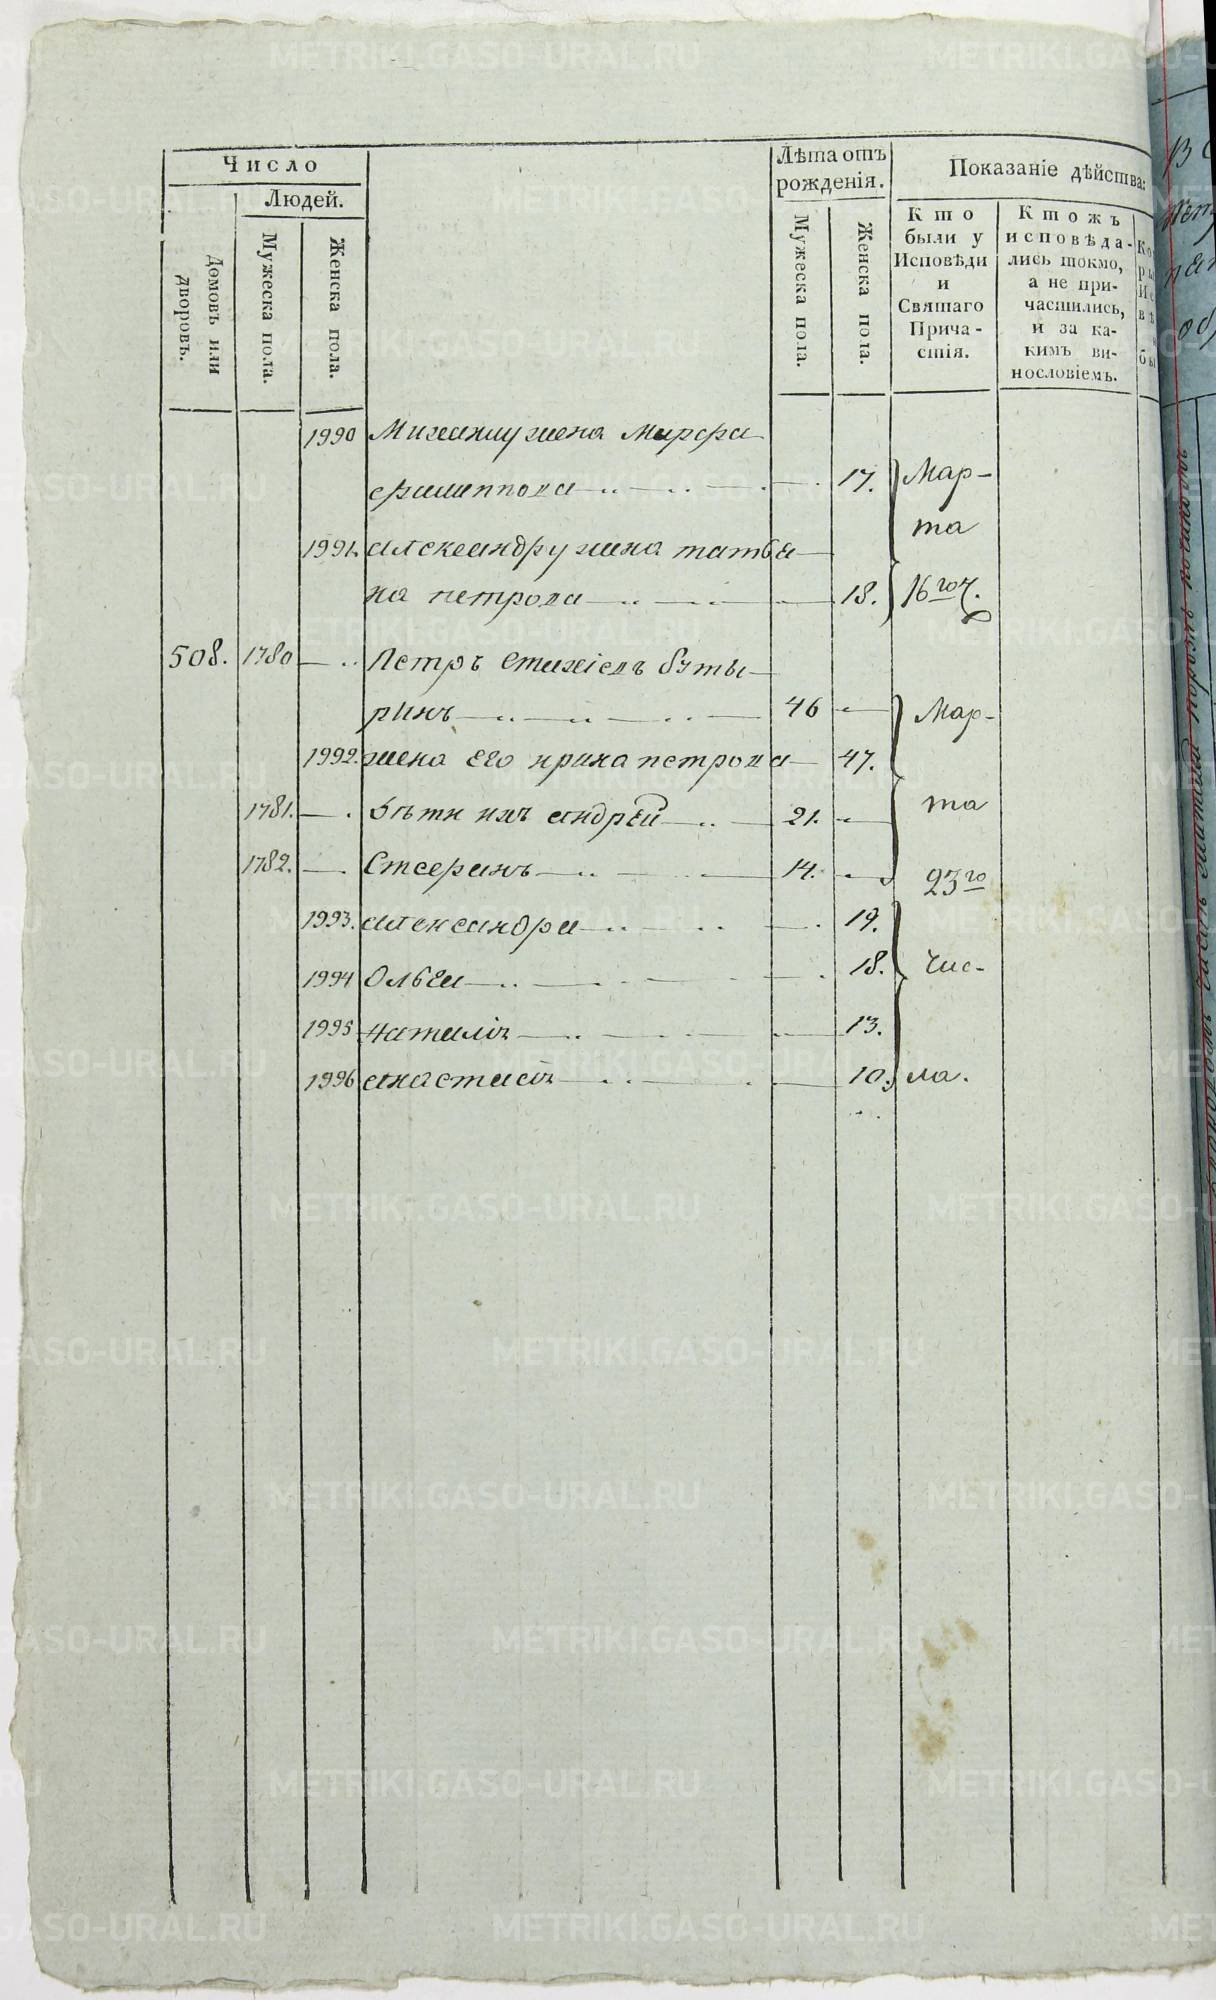 Число
Людей.
Домовъ или дворовъ.
Мужеска пола.
Женска пола.
Лѣта отъ рожденія.
Мужеска пола.
Женска пола.
Показаніе дѣйства:
Кто были у Исповѣди и Святаго Причастія.
Ктожъ исповѣдались токмо, а не причастились, и за какимъ винословіемъ.
1990 Михаилу жена Марфа
филиппова 17. Мар-
1991. александру жена татья та
на петрова 18. 16го ч.
508. 1780 Петръ Буты
ринъ 46 Мар-
1992. жена его ирина петрова 47.
1781. Дѣти ихъ андрей 21. та
1782. 14. 23го
1993. александра 19.
1994 Ольга 18. чис-
1995 наталія 13.
1996 анастасія 10. ла.
METRIKI.GASO-URAL.RU